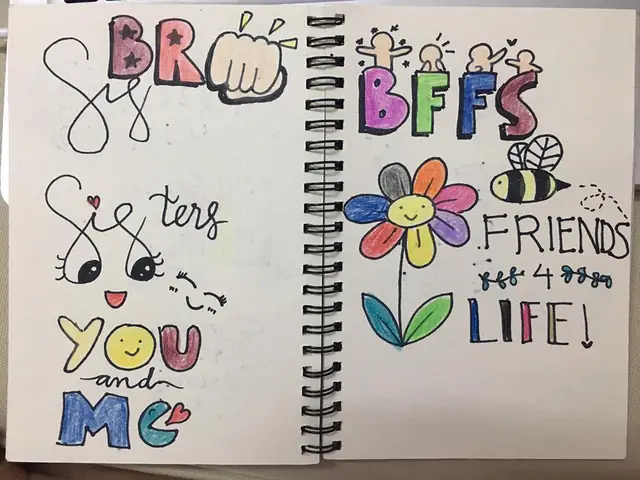 BRO
Sis
Sisters
YOU
and
ME
BFFS
FRIENDS
4
LIFE!